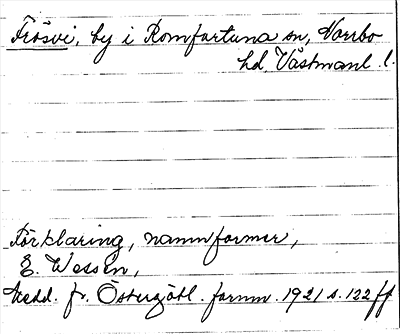 Frösvi, by i Romfartuna sn, Norrbo
hd, Västmanl. l.
Förklaring, namnformer,
E. Wessén,
Medd. fr. Östergötl. fornm. 1921 s. 122 ff